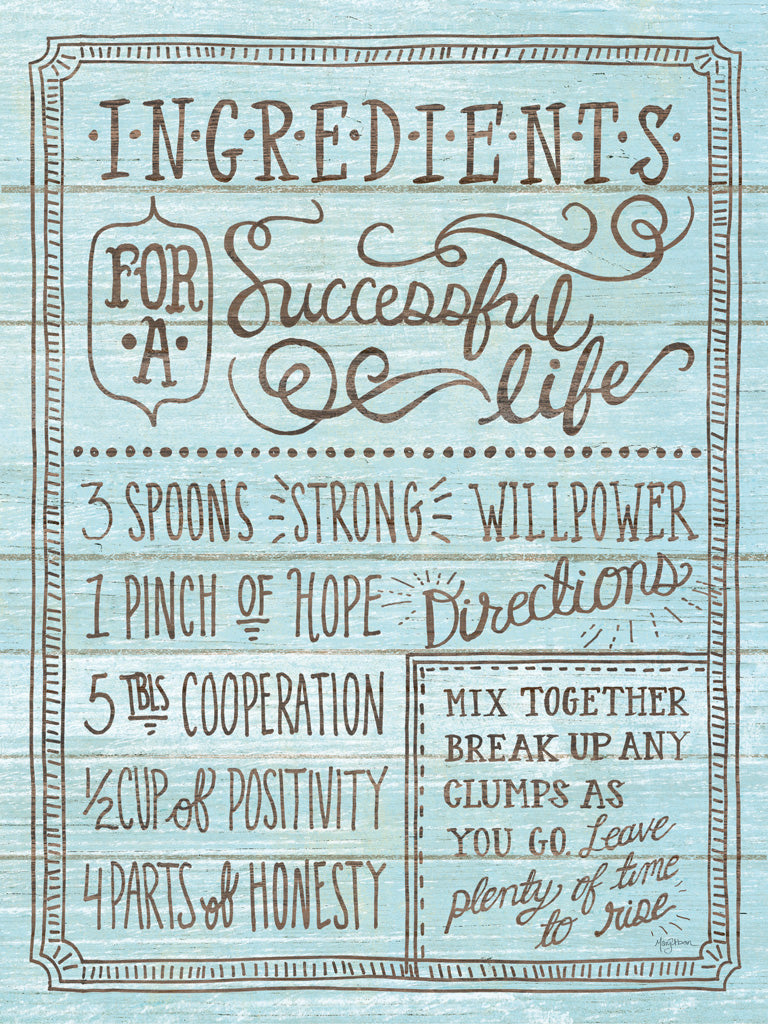 ·I·N·G·R·E·D·I·E·N·T·S·
FOR
·A·
Successful
life
3 SPOONS STRONG WILLPOWER
1 PINCH OF HOPE
5 TBLS COOPERATION
½ CUP of POSITIVITY
4 PARTS of HONESTY
Directions
MIX TOGETHER
BREAK UP ANY
CLUMPS AS
YOU GO. Leave
plenty of time
to rise